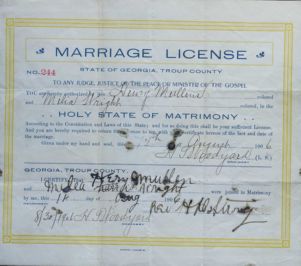 MARRIAGE LICENSE
No. 244
STATE OF GEORGIA, TROUP COUNTY
TO ANY JUDGE, JUSTICE OF THE PEACE OR MINISTER OF THE GOSPEL
YOU are hereby authorized to join Henry Mullins colored
and Milia Wright colored, in the
HOLY STATE OF MATRIMONY
According to the Constitution and Laws of this State; and for so doing this shall be your sufficient License.
And you are hereby required to return this License to me, with your certificate hereon of the fact and date of
the marriage.
Given under my hand and seal, this 7th August 1906
H Woodyard (L. S.)
GEORGIA, TROUP COUNTY
I CERTIFY Henry mullen
and Wright were joined in Matrimony
by me, this day of Aug 1906
8/30/1906 H Woodyard Rev H